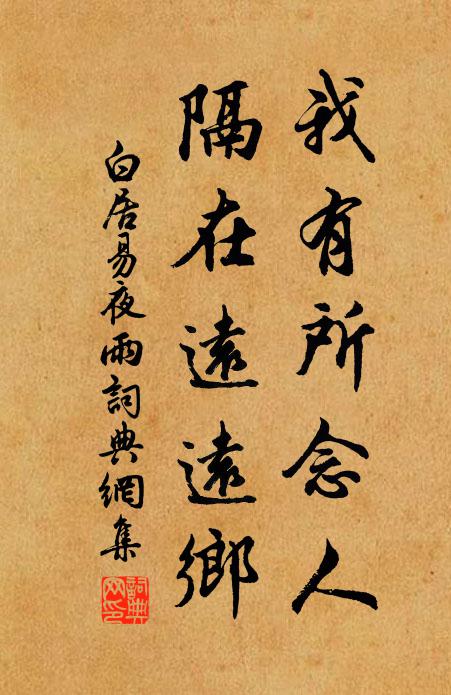 我有所念人
隔在遠遠鄉
白居易夜雨詞典網集
詞典网印